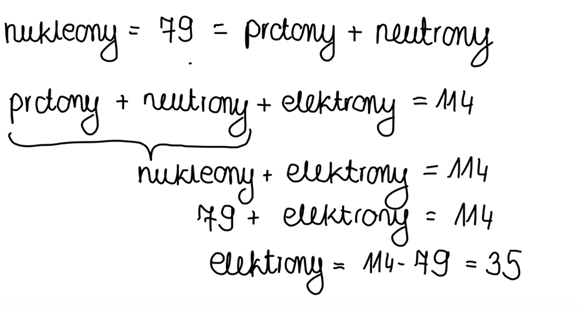 nukleony = 79 = protony + neutrony
protony + neutrony + elektrony = 114
nukleony + elektrony = 114
79 + elektrony = 114
elektrony = 114 - 79 = 35